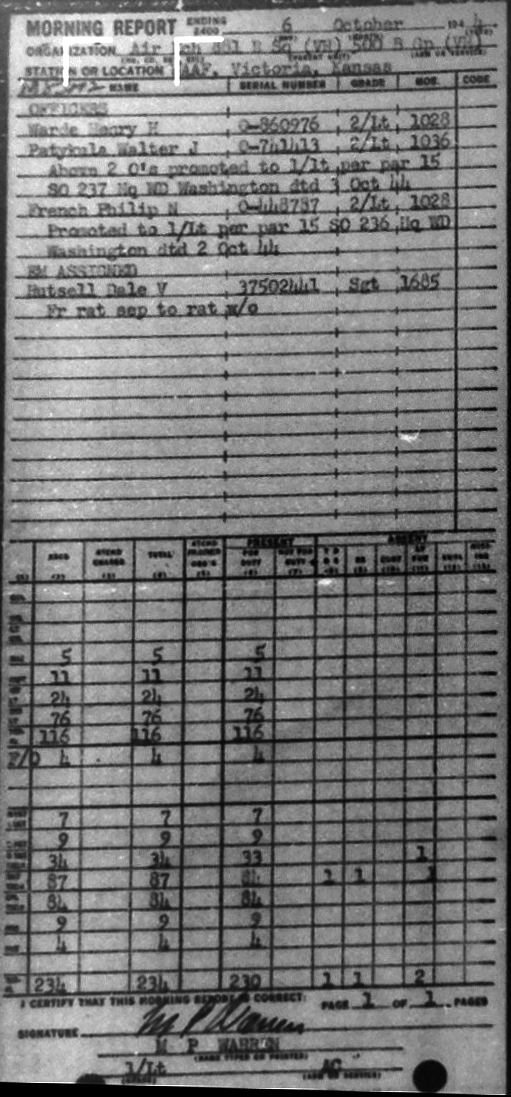 MORNING REPORT ENDING 2400 6 October 1944
ORGANIZATION Air Ech 881 B Sq (VH) 500 B Gp (VH)
STATION OR LOCATION AAF, Victoria, Kansas
NAME SERIAL NUMBER GRADE MOS. CODE
OFFICERS
Warde Henry H O-860976 2/Lt 1028
Patykula Walter J O-741413 2/Lt 1036
Above 2 O's promoted to 1/Lt per par 15
SO 237 Hq WD Washington dtd 3 Oct 44
French Philip N O-448737 2/Lt 1028
Promoted to 1/Lt per par 15 SO 236 Hq WD
Washington dtd 2 Oct 44
EM ASSIGNED
Hutsell Dale V 37502441 Sgt 1685
Fr rat sep to rat w/o
PRESENT ABSENT
TOTAL FOR DUTY NOT FOR DUTY
5 5 5
11 11 11
24 24 24
76 76 76
116 116 116
F/O 4 4 4
7 7 7
9 9 9
34 34 33 1
87 87 84 1 1 1
84 84 84
9 9 9
4 4 4
234 234 230 1 1 2
I CERTIFY THAT THIS MORNING REPORT IS CORRECT: PAGE 1 OF 1 PAGES
SIGNATURE M P Warren
M P WARREN
(NAME TYPED OR PRINTED)
1/Lt AC
(GRADE) (ARM OR SERVICE)